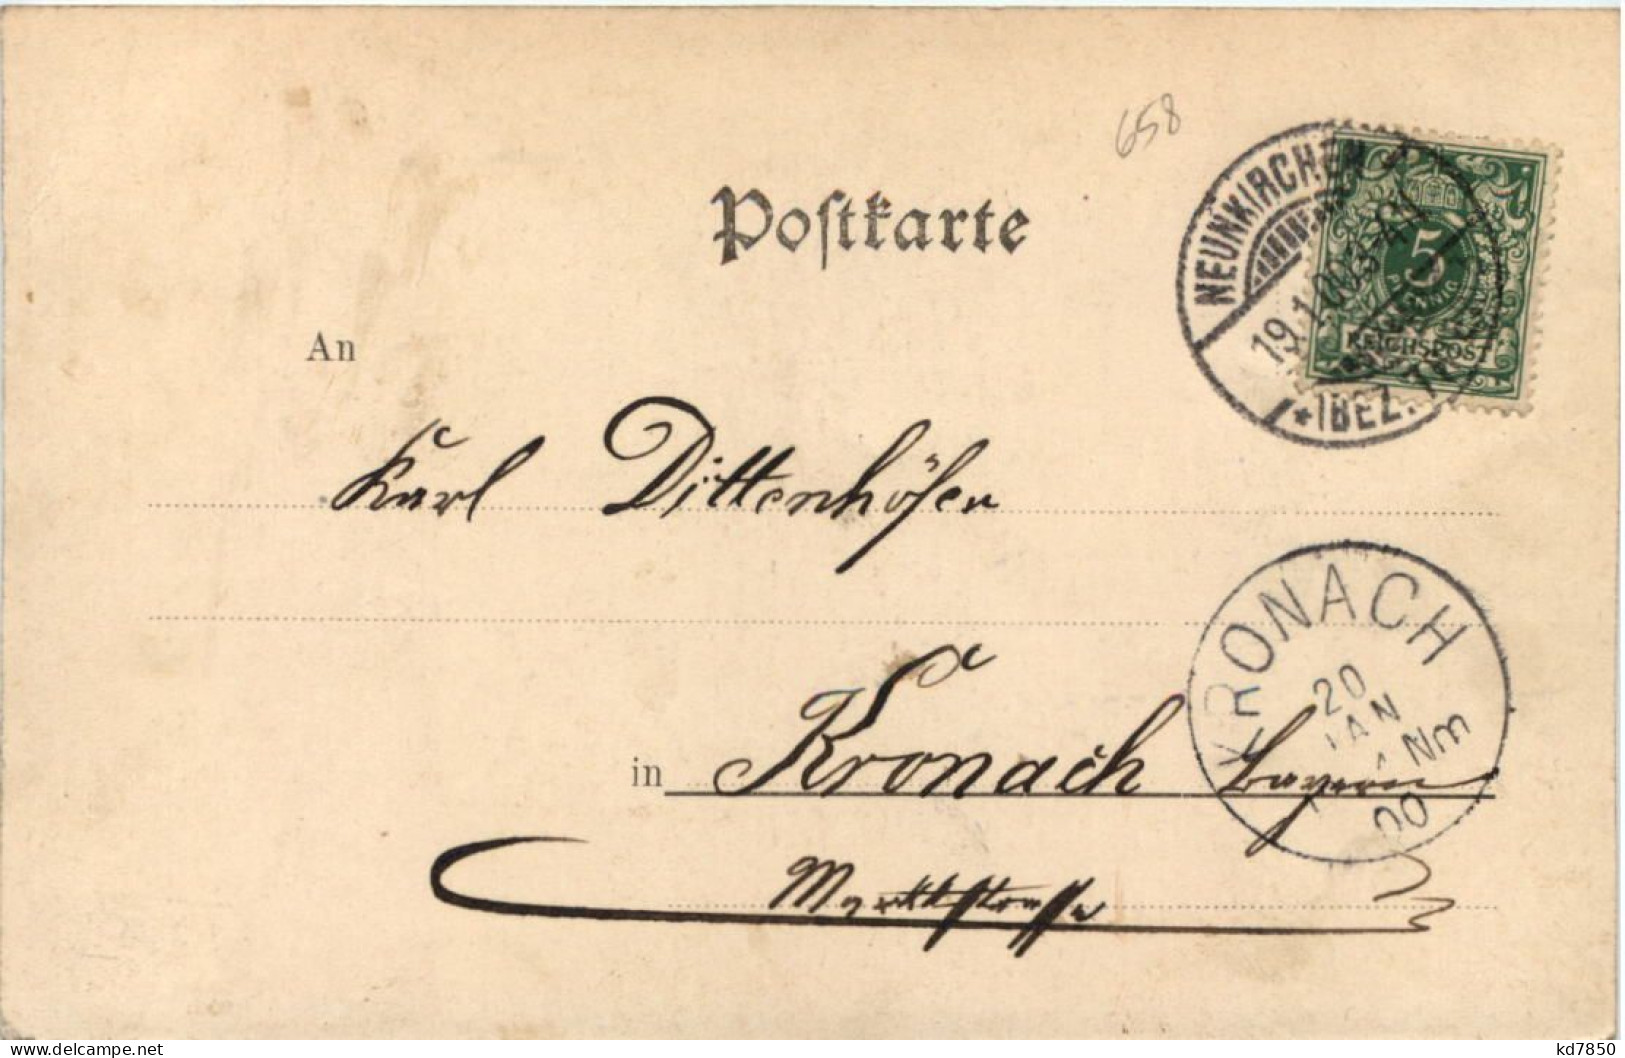 658
Postkarte
NEUNKIRCHEN
19.1.00.3-4N
*(BEZ. TRIER)
5
PFENNIG
REICHSPOST
An
Karl Dittenhöfer
KRONACH
20
JAN
Nm
00
in Kronach Bayern
Marktstrasse
www.delcampe.net
kd7850